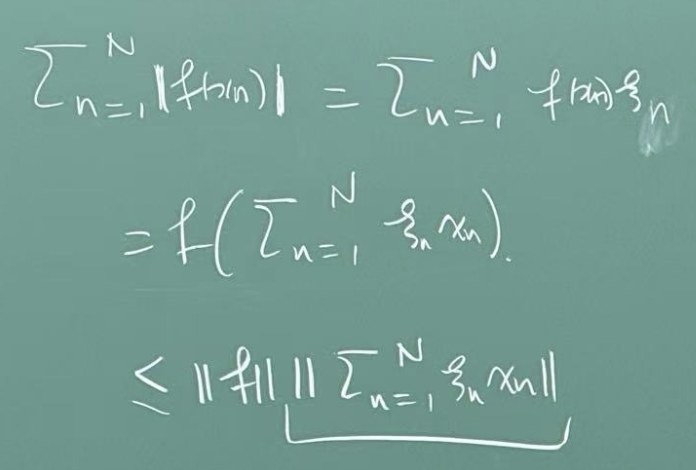 ∑_{n=1}^N |f(xn)| = ∑_{n=1}^N f(xn) ξ_n
= f(∑_{n=1}^N ξ_n x_n).
≤ ||f|| ||∑_{n=1}^N ξ_n x_n||